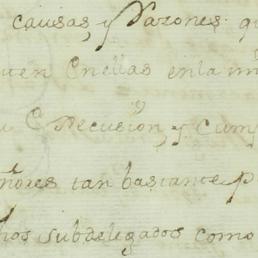 causas, y Razones qu
en Enellas en la
Execusion, y Cump
ñores tan bastante P
hos subdelegados como